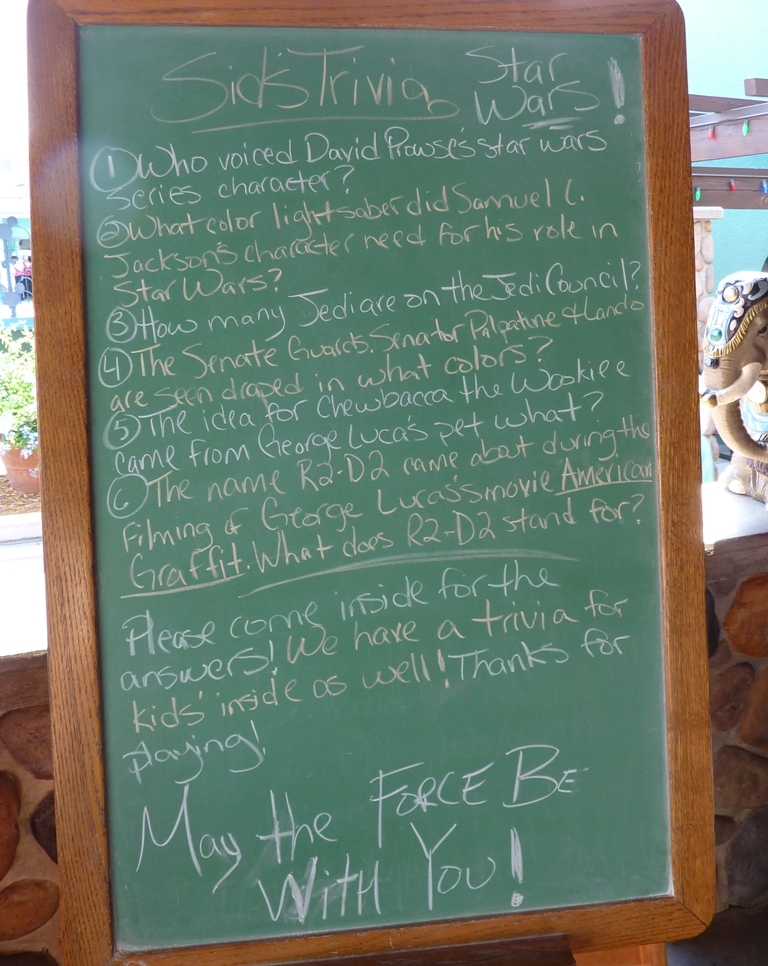 Sid's Trivia Star Wars!
① Who voiced David Prowse's star wars
series character?
② What color lightsaber did Samuel L.
Jackson's character need for his role in
Star Wars?
③ How many Jedi are on the Jedi Council?
④ The Senate Guards, Senator Palpatine & Lando
are seen draped in what colors?
⑤ The idea for Chewbacca the Wookiee
came from George Luca's pet what?
⑥ The name R2-D2 came about during the
Filming of George Lucas's movie American
Graffiti. What does R2-D2 stand for?
Please come inside for the
answers! We have a trivia for
kids' inside as well! Thanks for
playing!
May the FORCE BE
WITH YOU!